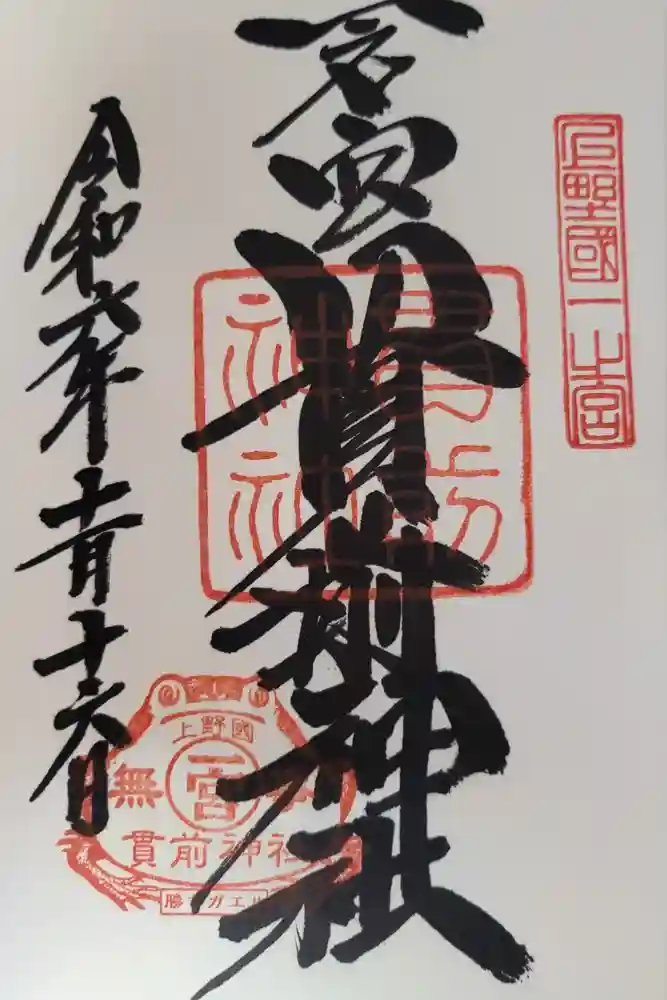 上野國一之宮
一之宮貫前神社
貫前神社
上野國
一宮
無事
貫前神社
勝守ガエル
令和六年十一月十六日